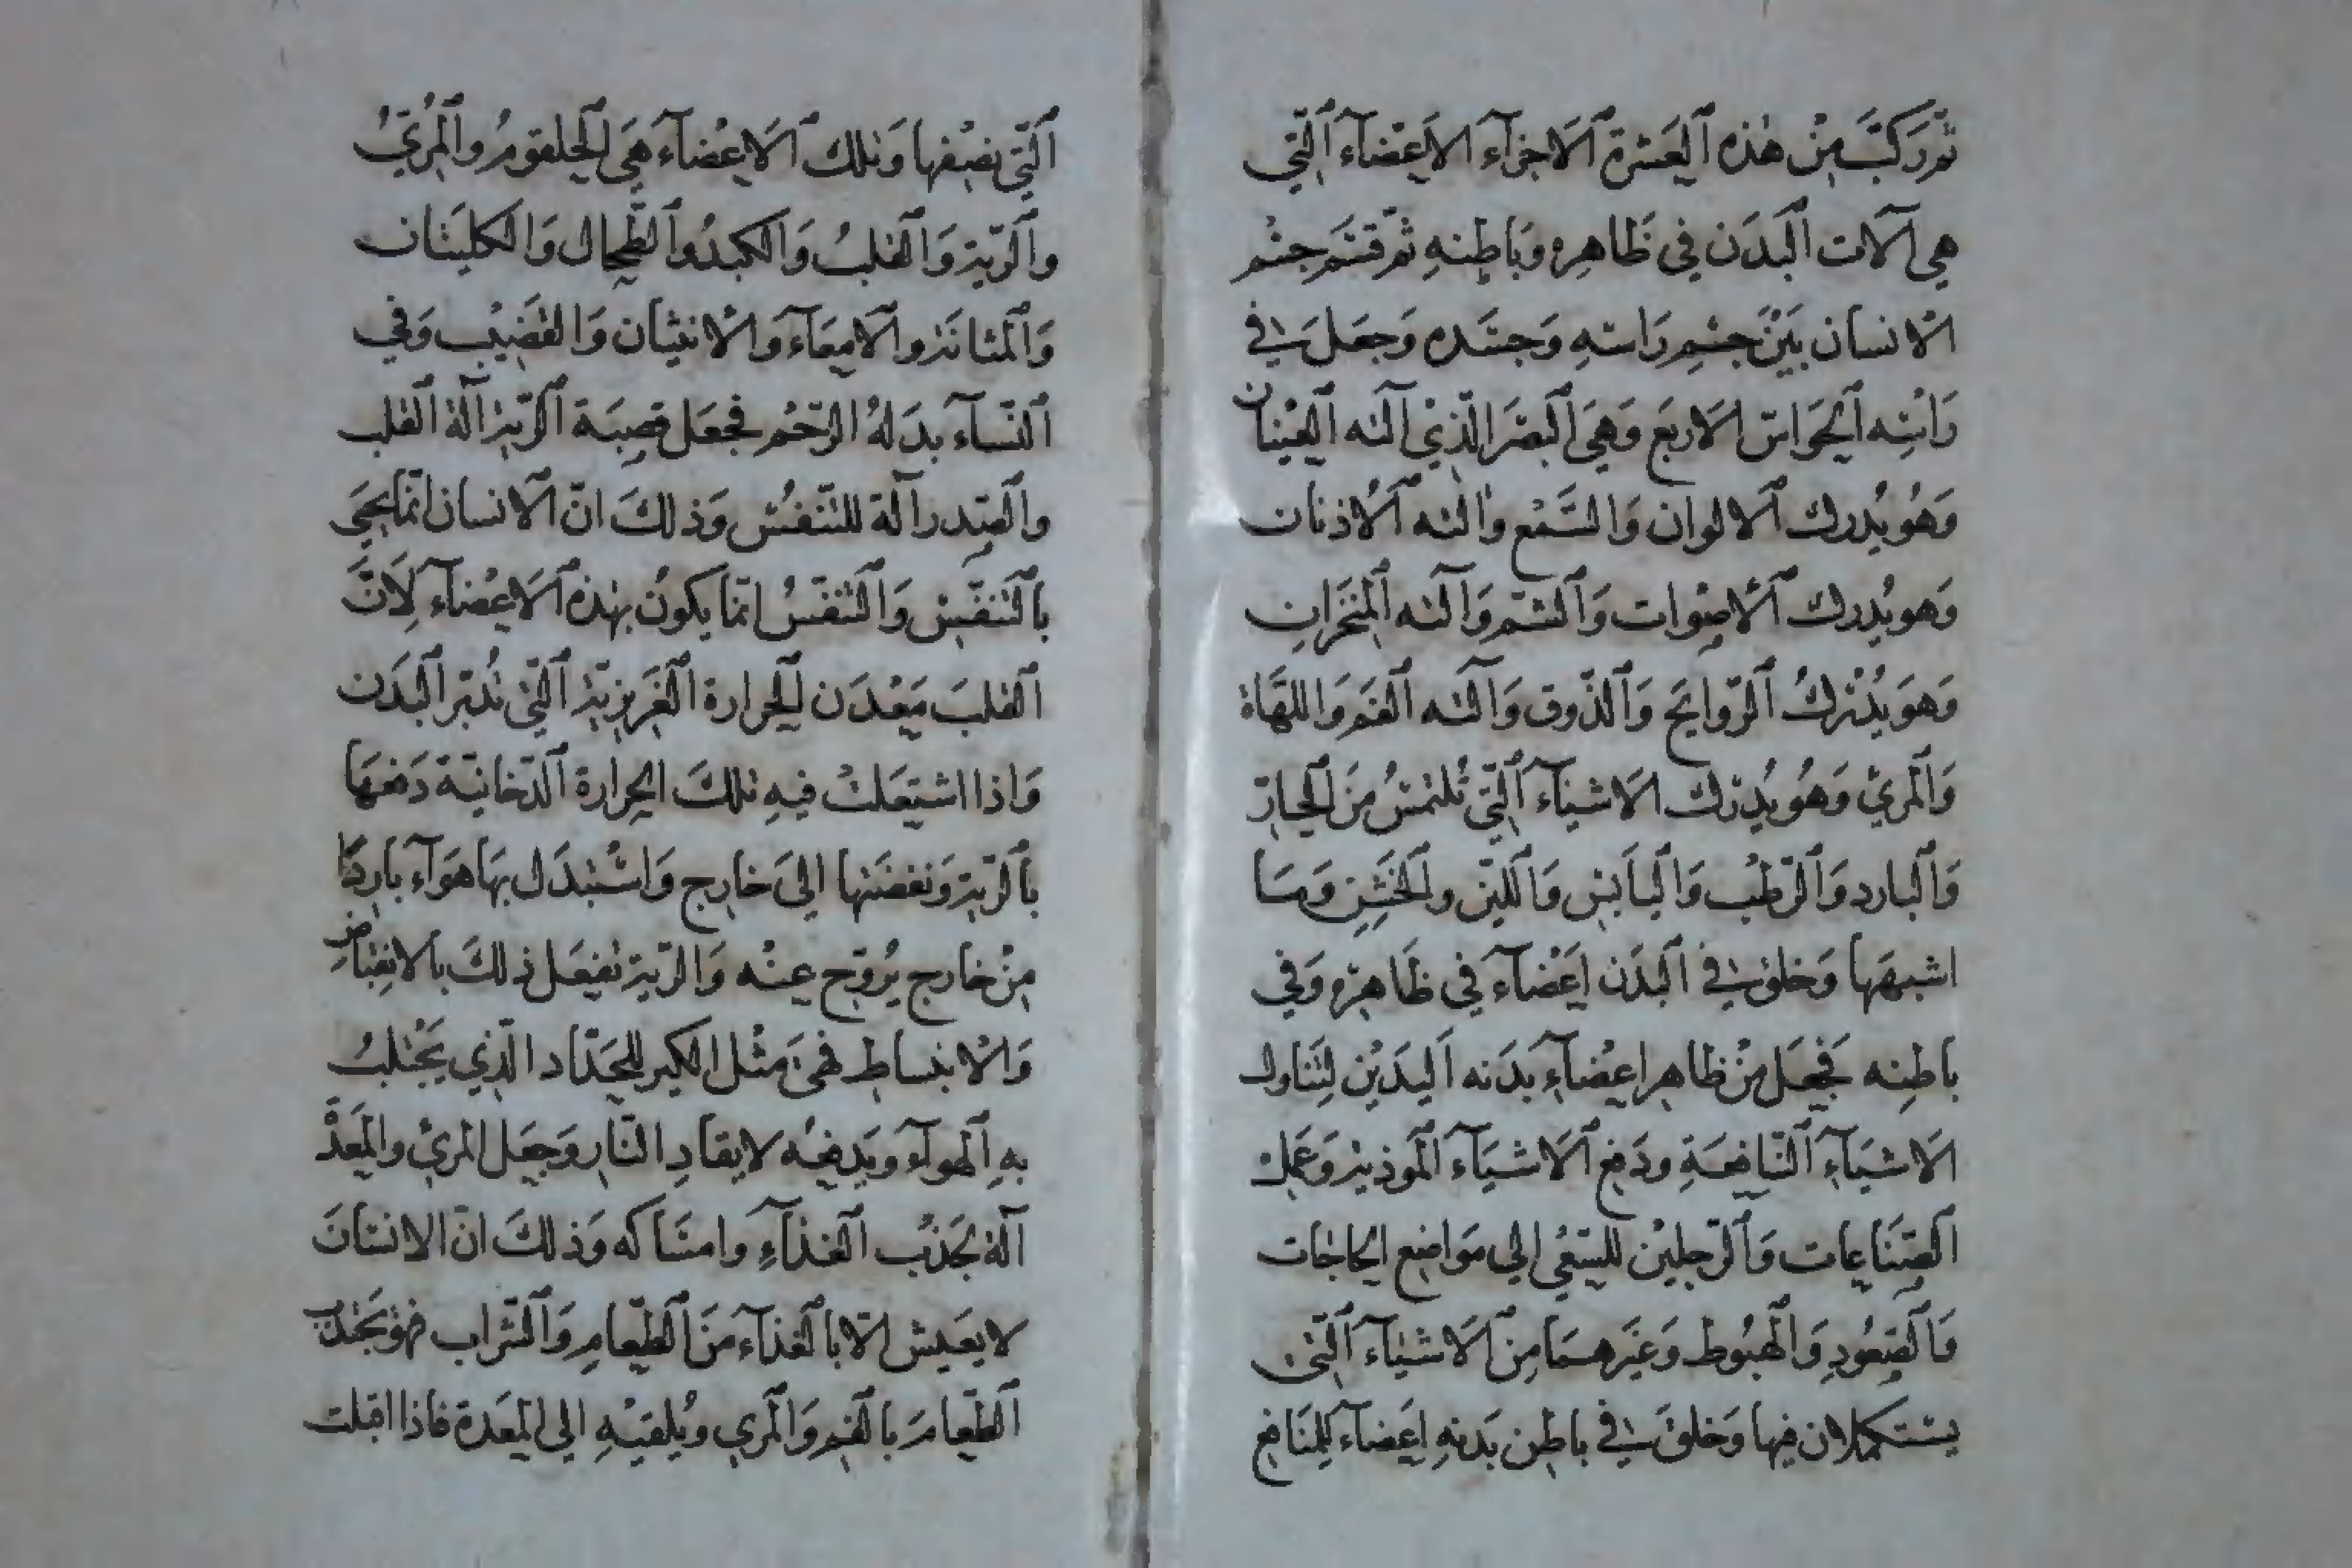 ثم ركب من هذه العشرة الاجزآء الاعضآء التي
هي آلات البدن في ظاهره وباطنه ثم قسم جسم
الانسان بين جسم راسه وجسده وجعل في
راسه الحواس الاربع وهي البصر الذي آلته العينان
وهو يدرك الالوان والسمع وآلته الاذنان
وهو يدرك الاصوات والشم وآلته المنخران
وهو يدرك الروايح والذوق وآلته الفم واللهاة
والمري وهو يدرك الاشيآء التي تلتمس من الحار
والبارد والرطب واليابس واللين والخشن وما
اشبهها وخلق في البدن اعضآء في ظاهره وفي
باطنه فجعل من ظاهر اعضآء بدنه اليدين لتناول
الاشيآء النافعة ودفع الاشيآء الموذية وعمل
الصناعات والرجلين للسعي الى مواضع الحاجات
والصعود والهبوط وغيرهما من الاشيآء التي
يستكملان فيها وخلق في باطن بدنه اعضآء للمنافع
التي نصفها وتلك الاعضآء هي الحلقوم والمري
والرية والقلب والكبد والطحال والكليتان
والمثانة والامعآء والانثيان والقضيب وفي
النسآء بدله الرحم فجعل قصبة الرية آلة القلب
والصدر آلة للتنفس وذلك ان الانسان انما يحيى
بالتنفس والتنفس انما يكون بهذه الاعضآء لان
القلب معدن الحرارة الغريزية التي تدبر البدن
واذا اشتعلت فيه تلك الحرارة الدخانية دفعها
بالرية ونفضتها الى خارج واستبدل بها هوآء باردا
من خارج يروح عنه والرية تفعل ذلك بالانقباض
والانبساط فهي مثل الكير للحداد الذي يجتلب
به الهوآء ويدفعه لايقاد النار وجعل المري والمعدة
آلة لجذب الغذآء وامساكه وذلك ان الانسان
لا يعيش الا بالغذآء من الطعام والشراب فهو يجذب
الطعام بالفم والمري ويلقيه الى المعدة فاذا اقبلت